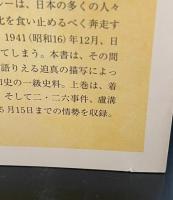 ルーは、日本の多くの人々
化を食い止めるべく奔走す
1941（昭和16）年12月、日
てしまう。本書は、その間
語りえる迫真の描写によっ
和史の一級史料。上巻は、着
そして二・二六事件、盧溝
5月15日までの情勢を収録。